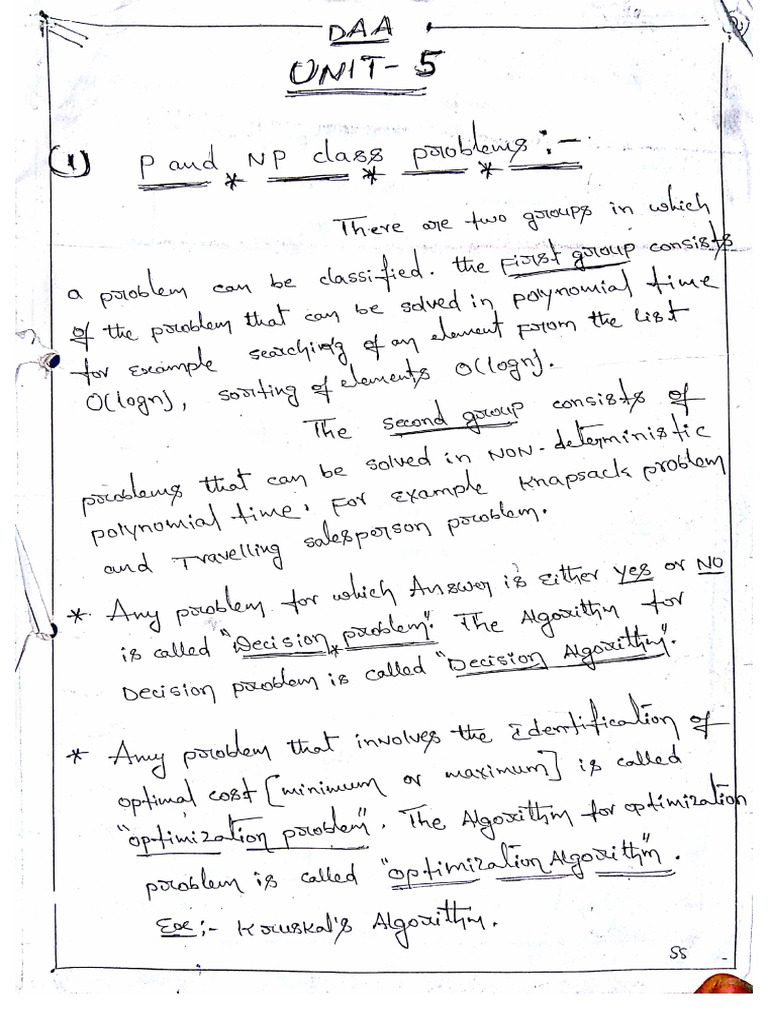 DAA
UNIT-5
(1) P and NP class problems:-
There are two groups in which
a problem can be classified. the First group consists
of the problem that can be solved in polynomial time
for example searching of an element from the list
O(logn), sorting of elements O(logn).
The second group consists of
problems that can be solved in NON-deterministic
polynomial time. For Example Knapsack problem
and Travelling salesperson problem.
* Any problem for which Answer is Either Yes or NO
is called "Decision problem". The Algorithm for
Decision problem is called "Decision Algorithm".
* Any problem that involves the Identification of
optimal cost [minimum or maximum] is called
"optimization problem". The Algorithm for optimization
problem is called "optimization Algorithm".
Ex:- Kruskal's Algorithm.
SS